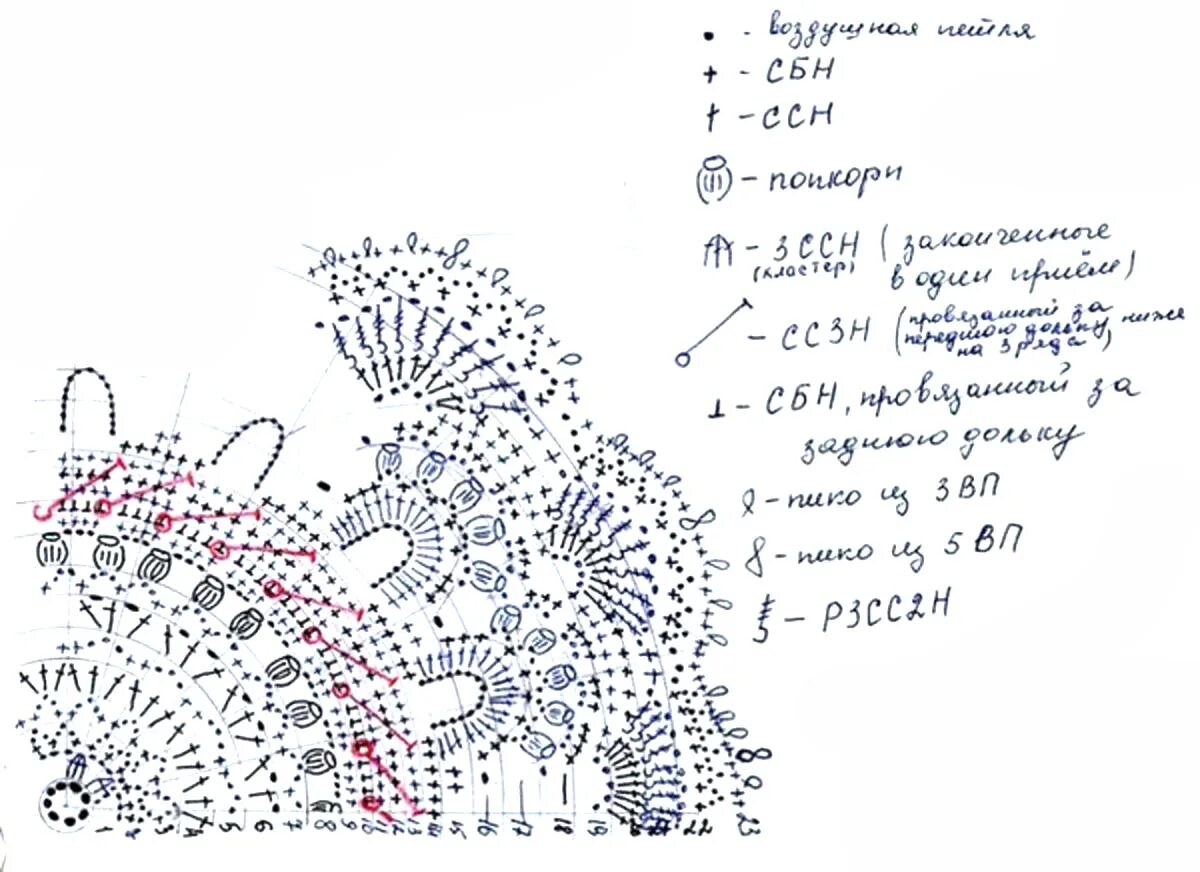 • - воздушная петля
+ - СБН
† - ССН
- попкорн
- 3 ССН (законченные
(кластер) в один приём)
- СС3Н (провязанный за
переднюю дольку, ниже
на 3 ряда)
⊥ - СБН, провязанный за
заднюю дольку
- пико из 3 ВП
- пико из 5 ВП
- Р3СС2Н
1 2 3 4 5 6 7 8 9 10 11 12 13 14 15 16 17 18 19 20 21 22 23